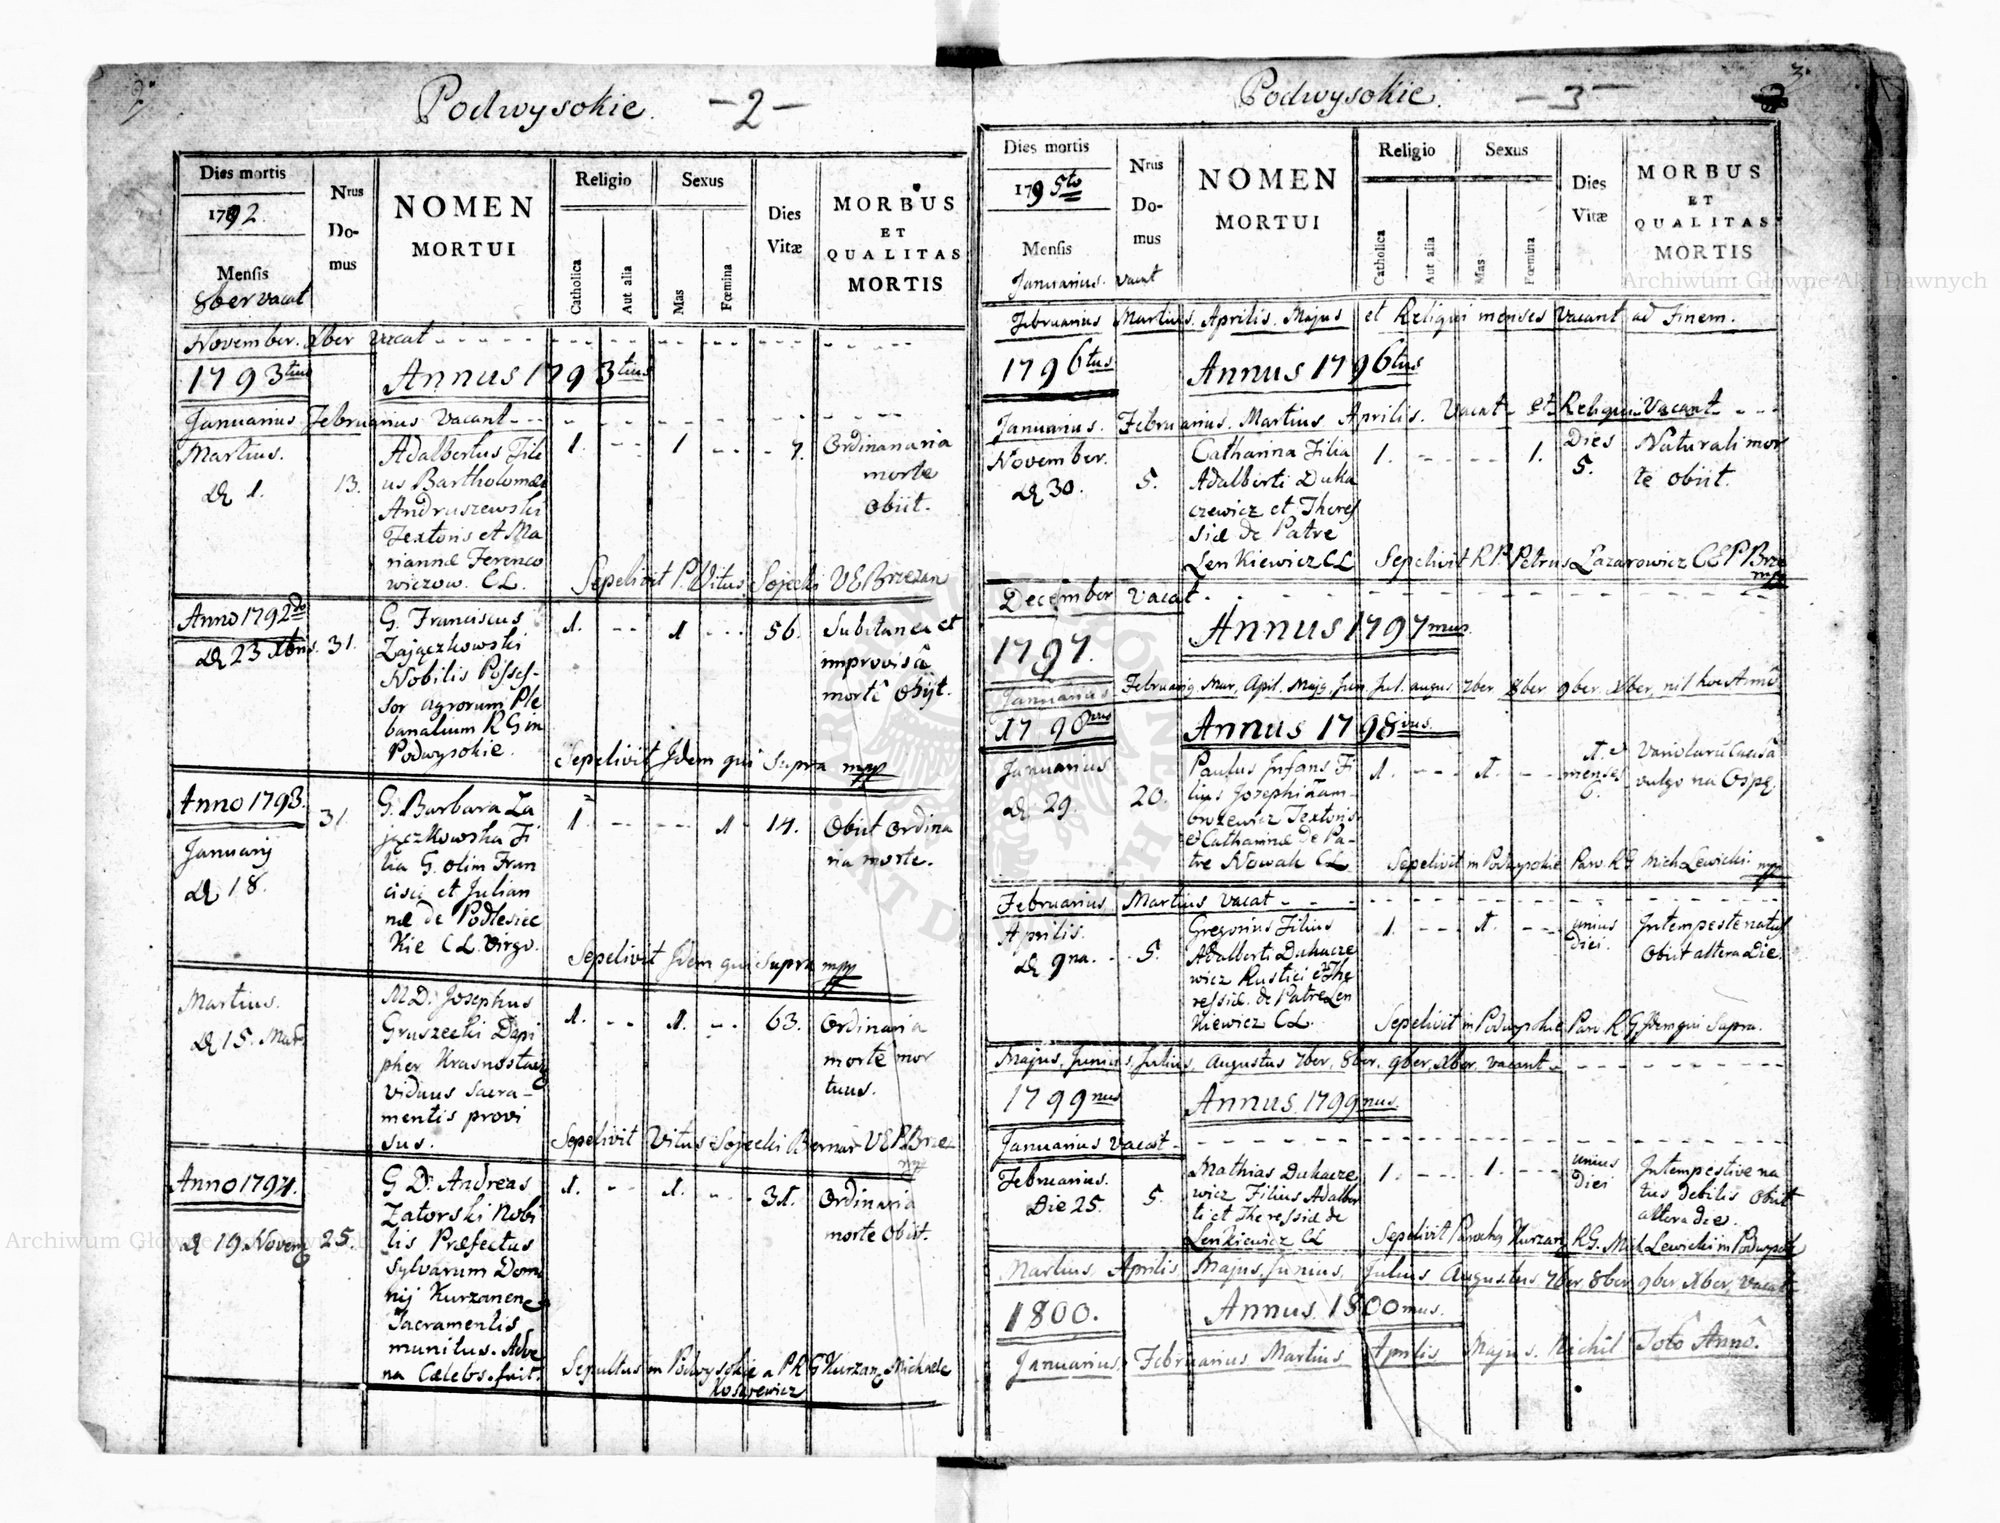 Podwysokie. - 2 -
Dies mortis
1792
Mensis
8ber vacat
Nrus
Do-
mus
NOMEN
MORTUI
Religio
Catholica
Aut alia
Sexus
Mas
Fœmina
Dies
Vitæ
MORBUS
ET
QUALITAS
MORTIS
November. Xber vacat
1793tius Annus 1793tius
Januarius Februarius vacant
Martius.
1. 13.
Adalbertus Fili
us Bartholomæi
Andruszewski
Textoris et Ma
riannæ Ferenco
wiczow. CL.
1. 1 7.
Ordinanaria
morte
obiit.
Sepelivit P. Vitus Sojecki VE Brzezan
Anno 1792do
23 Xbris. 31.
G. Franciscus
Zajączkowski
Nobilis Posses-
sor agrorum Ple
banalium RG in
Podwysokie.
1. 1 56.
Subitanea et
improvisâ
mortê obijt.
Sepelivit Idem qui supra mpp
Anno 1793.
Januarij
18.
31.
G. Barbara Za
jączkowska Fi
lia G. olim Fran
cisci et Julian
næ de Podlesiec
kie CL. Virgo.
1. 1 14.
Obiit ordina
ria morte.
Sepelivit Idem qui supra mpp
Martius.
15. Mar
MD. Josephus
Gruszecki Dapi
pher Krasnostav
viduus Sacra-
mentis provi
sus.
1. 1. 63.
Ordinaria
morte mor
tuus.
Sepelivit Vitus Sojecki Bernar VEP Brze
Anno 1794.
19 Novem 25.
G D. Andreas
Zatorski Nobi
lis Præfectus
Sylvarum Domi
nij Kurzanen
Sacramentis
munitus. Adve
na Cælebs fuit.
1. 1. 31.
Ordinaria
morte obiit.
Sepultus in Podwysokie a PRG Kurzan Michaele
Podwysokie. - 3 -
3.
Dies mortis
1795to
Mensis
Januarius. vacat
Nrus
Do-
mus
NOMEN
MORTUI
Religio
Catholica
Aut alia
Sexus
Mas
Fœmina
Dies
Vitæ
MORBUS
ET
QUALITAS
MORTIS
Februarius Martius. Aprilis. Majus et Reliqui menses vacant ad Finem.
1796tus Annus 1796tus
Januarius. Februarius. Martius Aprilis. Vacat et Reliqui Vacant
November.
30. 5.
Catharina Filia
Adalberti Duka
czewicz et Theres
siæ de Patre
Lenkiewicz CL
1. 1.
Dies
5.
Naturali mor
te obiit.
Sepelivit RP. Petrus Lazarowicz CEP Brze
mpp
December vacat.
1797. Annus 1797mus
Januarius Februarig. Mar, April, Majg, Jun, Jul. augus, 7ber. 8ber 9ber. Xber, nil hoc Annô
1798vus Annus 1798vus.
Januarius
29. 20.
Paulus Infans Fi
lius Josephi Zam-
brozewicz Textoris
et Catharinæ de Pa-
tre Nowak CL
1. 1.
menses
Variolarû Causâ
vulgo na Ospę.
Sepelivit in Podwysokie Paro. RG Mich Lewicki mpp
Februarius Martius vacat
Aprilis.
9na. 5.
Gregorius Filius
Adalberti Dukacze
wicz Rustici et The
ressiæ. de Patre Len
kiewicz CL.
1. 1.
unius
Diei.
Intempeste natus
Obiit altera Die.
Sepelivit in Podwysokie Paro. RG Idem qui Supra.
Majus, Junius, Julius, Augustus 7ber, 8ber. 9ber, Xber, vacant
1799nus Annus 1799nus.
Januarius vacat
Februarius.
Die 25. 5.
Mathias Dukacze
wicz Filius Adalber
ti et Theressiæ de
Lenkiewicz CL
1. 1.
unius
Diei
Intempestive na
tus debilis Obiit
altera die.
Sepelivit Parochg Kurzan RG. Mich Lewicki in Podwysok
Martius, Aprilis, Majus, Junius, Julius, Augustus, 7ber, 8ber, 9ber Xber, vacat
1800. Annus 1800mus.
Januarius. Februarius Martius Aprilis Majus. Nichil Totô Annô.
Archiwum Główne Akt Dawnych
Archiwum Główne Akt Dawnych